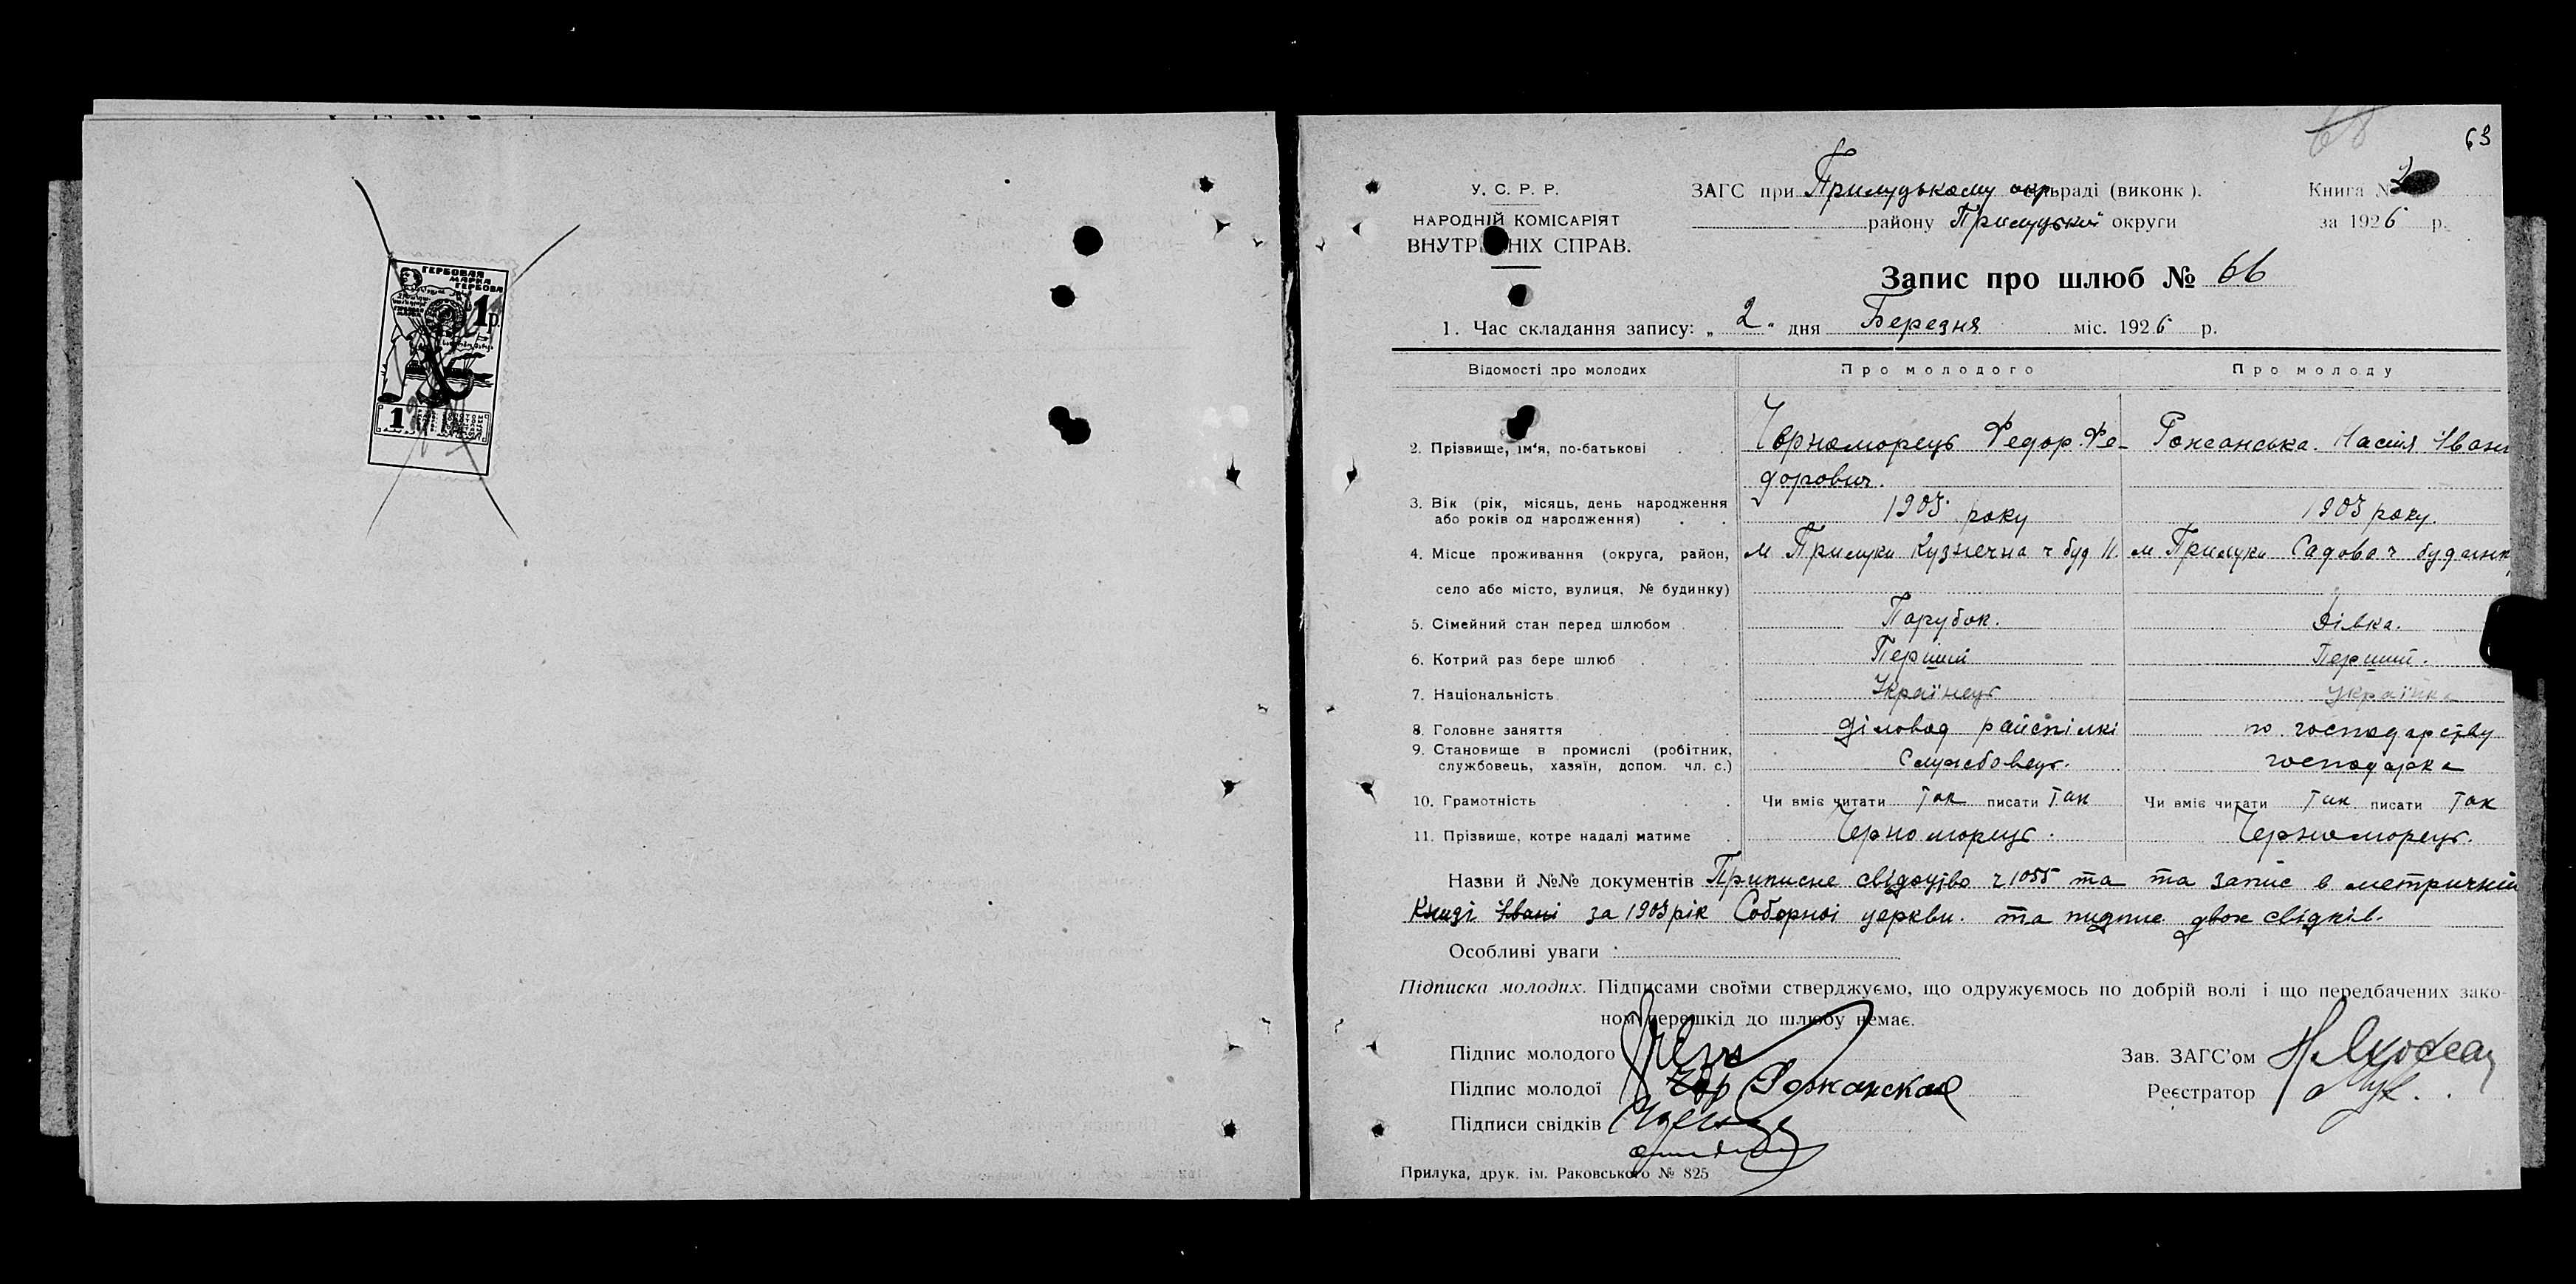 ГЕРБОВАЯ
МАРКА
ГЕРБОВА
1 р.
1
63
У. С. Р. Р.
НАРОДНІЙ КОМІСАРІЯТ
ВНУТРІШНІХ СПРАВ.
ЗАГС при Прилуцькому окр ьраді (виконк ).
района Прилуцької округи
Книга № 2
за 1926 р.
Запис про шлюб № 66
1. Час складання запису: „ 2 " дня Березня міс. 1926 р.
Відомості про молодих Про молодого Про молоду
2. Прізвище, ім'я, по-батькові Чорноморець Федор Фе- Настя Іван
дорович.
3. Вік (рік, місяць, день народження
або років од народження) 1903 року 1903 року.
4. Місце проживання (округа, район, м Прилуки Кузнечна ч буд 11. м Прилуки Садова ч будинк
село або місто, вулиця, № будинку)
5. Сімейний стан перед шлюбом Парубок. Дівка.
6. Котрий раз бере шлюб Перший Перший.
7. Національність Українець Українка
8. Головне заняття діловод райспілкі по господарству
9. Становище в промислі (робітник,
службовець, хазяїн, допом. чл. с.) Службовець. господарка
10. Грамотність Чи вміє читати так писати так Чи вміє читати так писати так
11. Прізвище, котре надалі матиме Черноморець. Черноморець.
Назви й №№ документів Приписне свідоцтво ч 1055 та та запис в метричній
Книзі за 1903 рік Соборної церкви. та підпис двох свідків.
Особливі уваги :
Підписка молодих. Підписами своїми стверджуємо, що одружуємось по добрій волі і що передбачених зако-
ном перешкід до шлюбу немає.
Підпис молодого
Зав. ЗАГС'ом
Підпис молодої
Реєстратор
Підписи свідків
Прилука, друк. ім. Раковського № 825